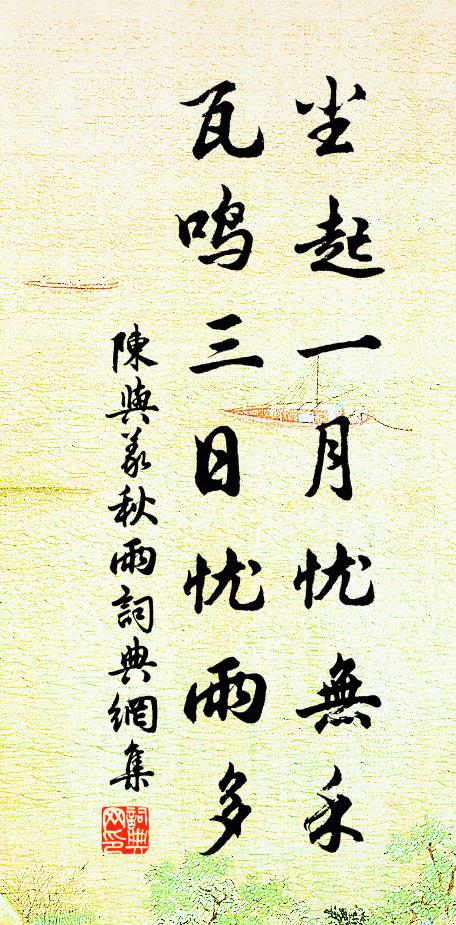 尘起一月忧無禾
瓦鸣三日忧雨多
陳與義秋雨詞典網集
詞典网印